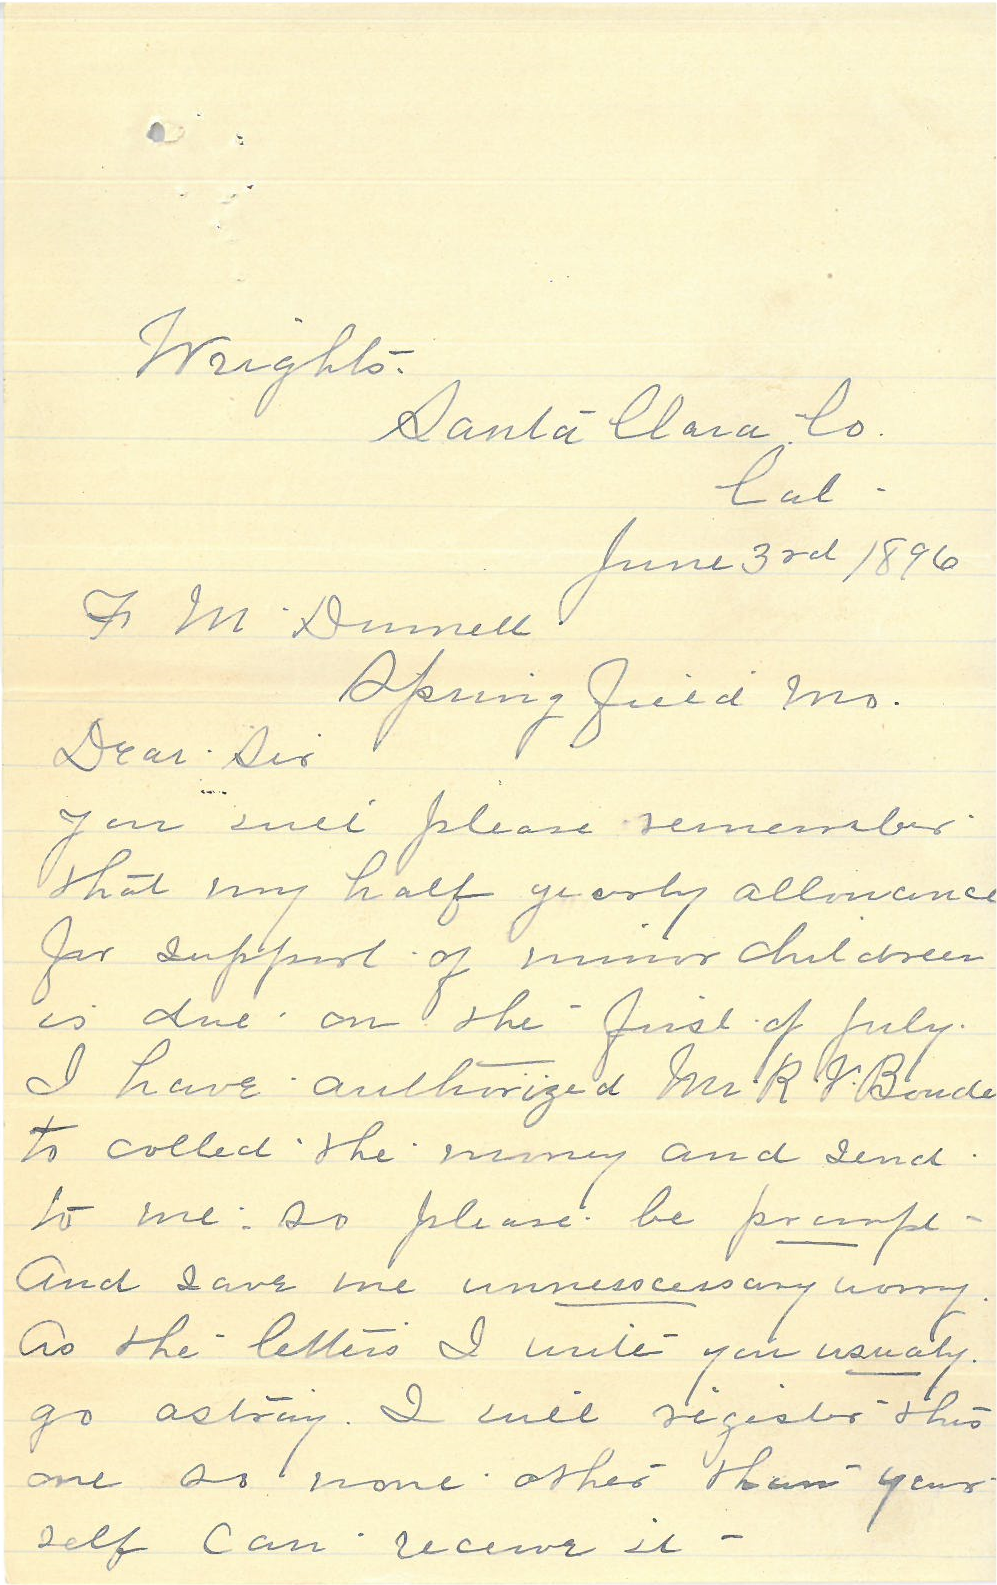 Wrights.
Santa Clara Co.
Cal -
June 3rd 1896
F M Dunnell
Springfield Mo.
Dear Sir
you will please remember
that my half yearly allowance
for support of minor children
is due on the first of July.
I have authorized Mr. R. V. Boude
to collect the money and send
to me. so please be prompt -
And save me unnesscessary worry.
As the letters I write you usualy.
go astray. I will register this
one so none other than your
self can receive it -